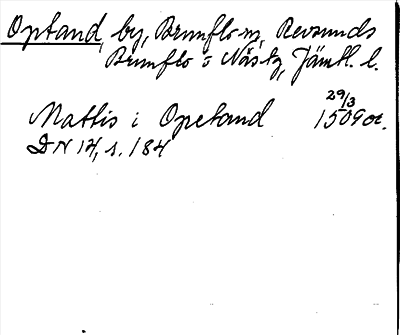 Optand, by, Brunflo sn, Revsunds
Brunflo o Näs tg, Jämtl. l.
Mattis i Opetand 29/3 1509 or.
DN 14, s. 184